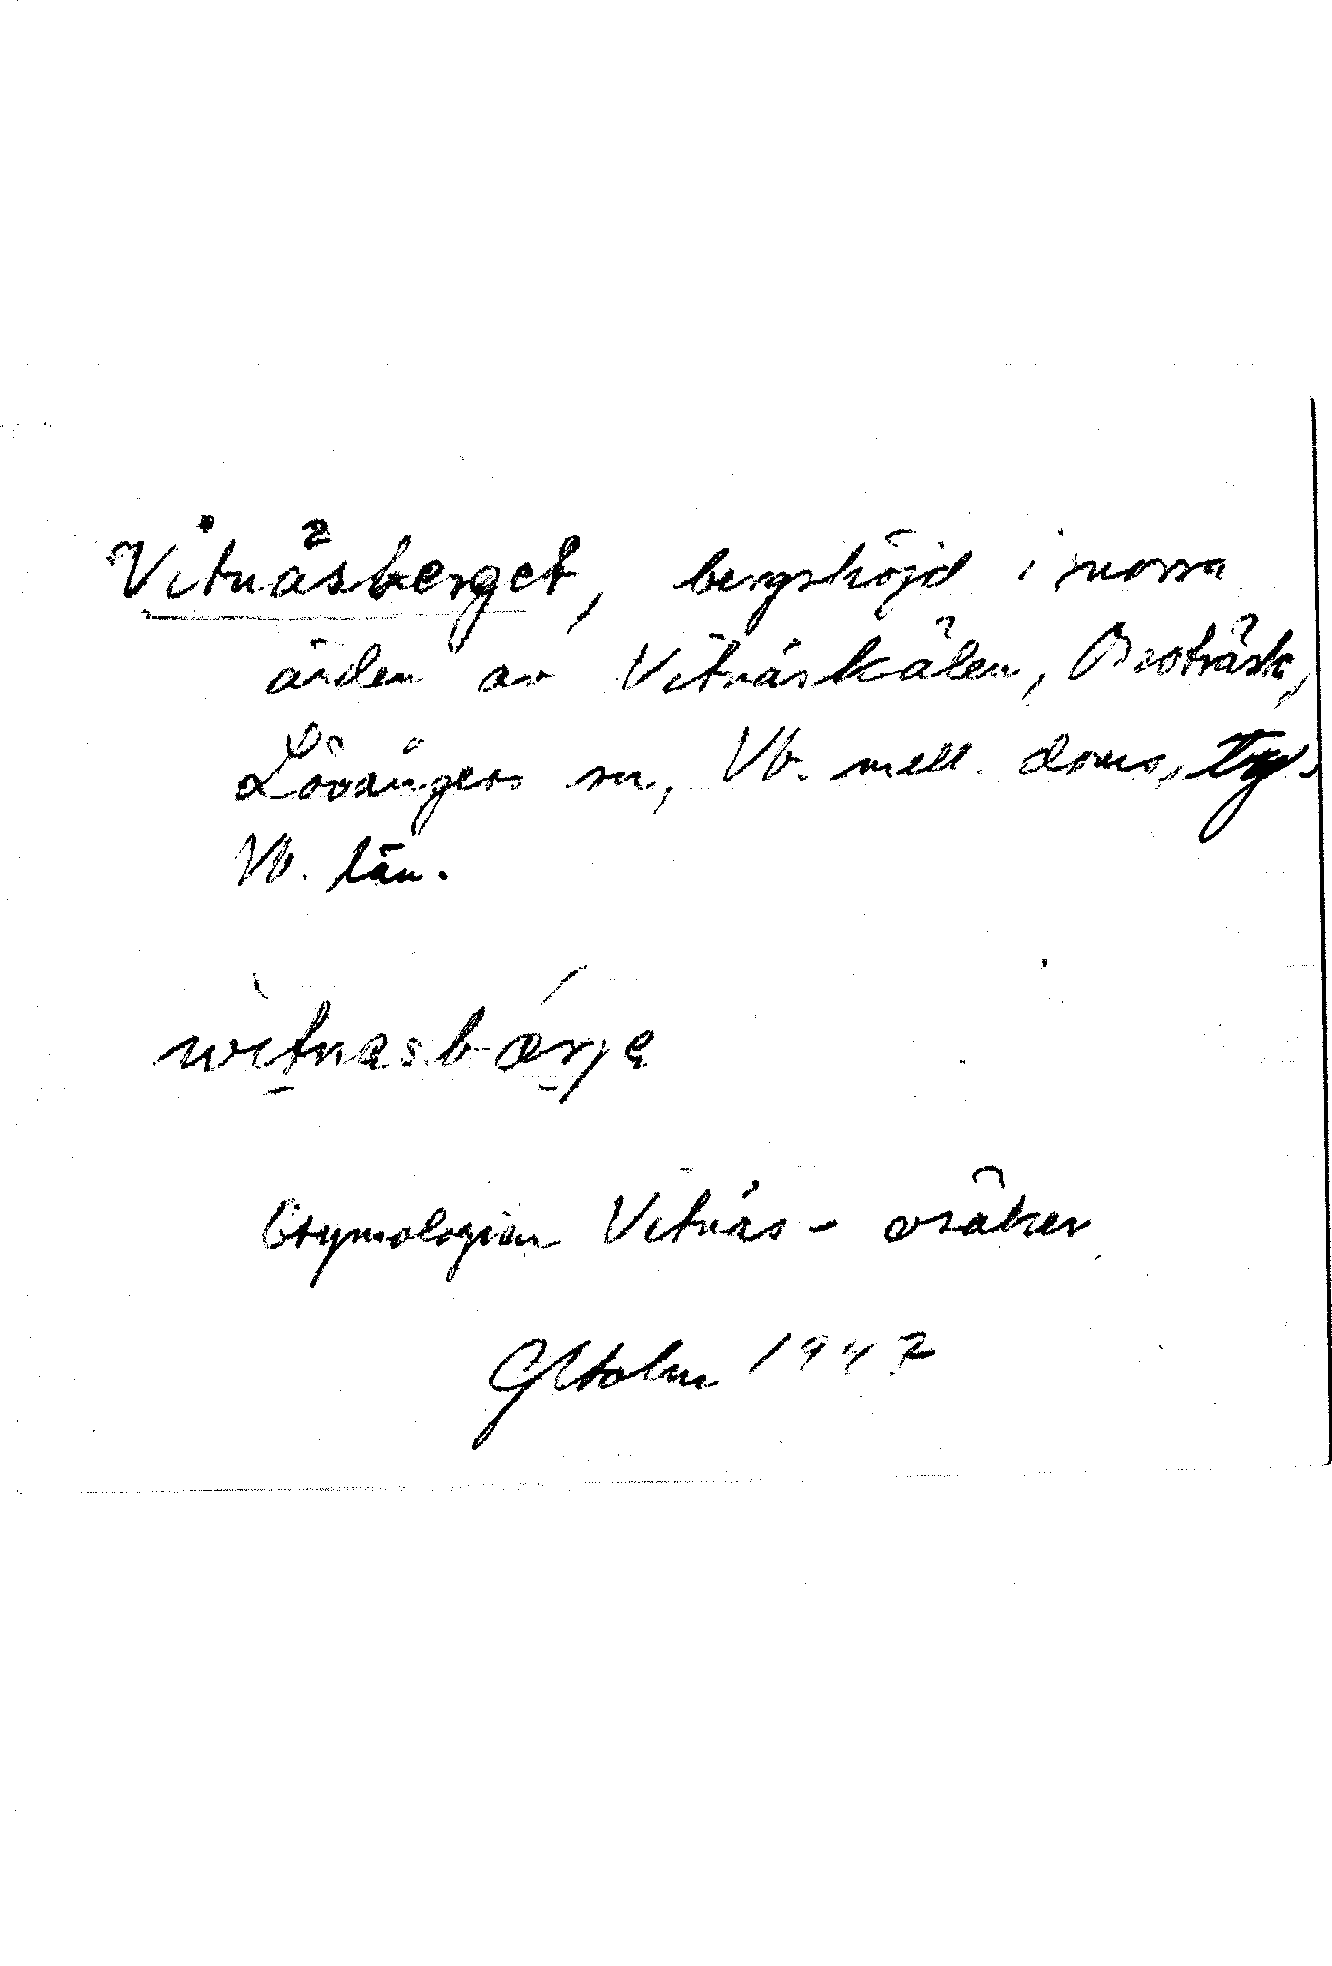 Vitnäsberget, bergshöjd i norra
ändan av Vitnäskälen, Broträsk,
Lövångers sn, Vb. mell. doms,
Vb. län.
witnasbærje
Etymologien Vitnäs- osäker
G Holm 1947